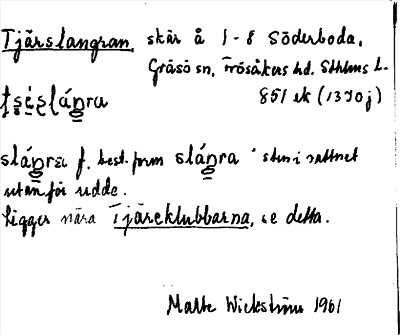 Tjärslangran, skär å 1-8 Söderboda,
Gräsö sn, Frösåkers hd. Sthlms l.
851 ek (13 I 0 j)
slánra f. best. form slánra "sten i vattnet
utanför udde.
Ligger nära Tjäreklubbarna, se detta.
Malte Wickström 1961